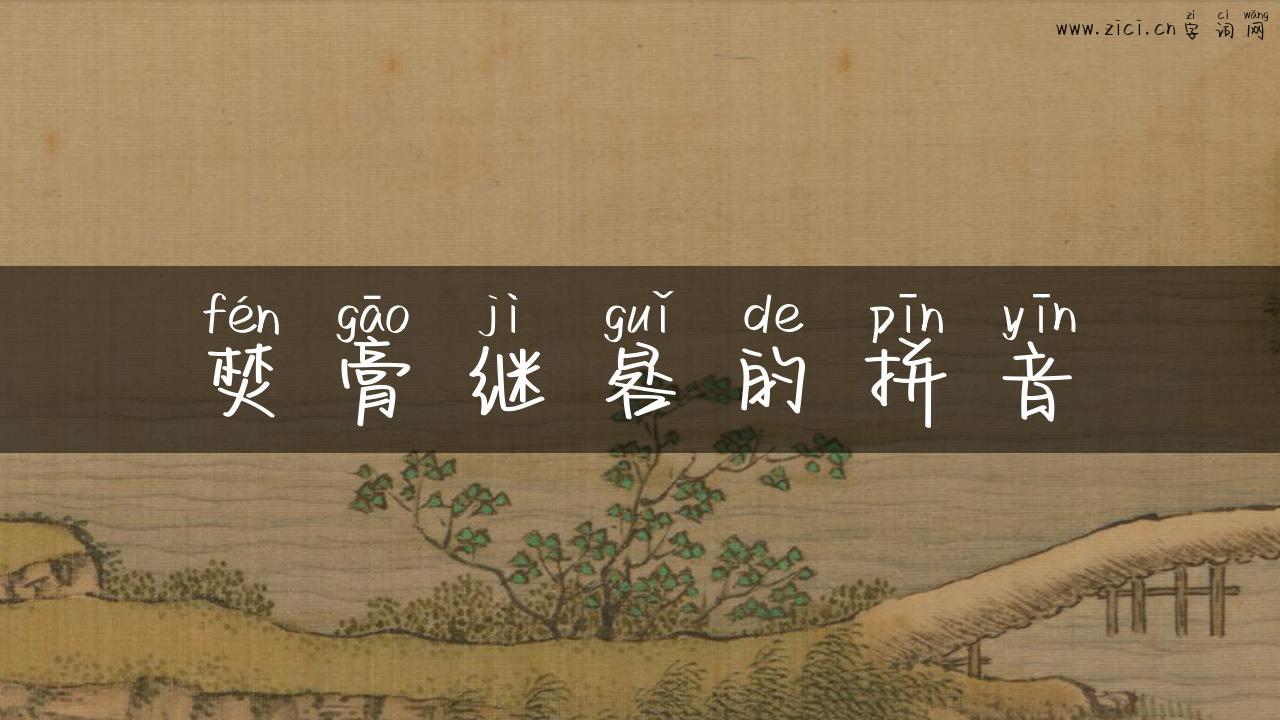 zì cí wǎng
www.zici.cn 字 词 网
fén gāo jì guǐ de pīn yīn
焚 膏 继 晷 的 拼 音